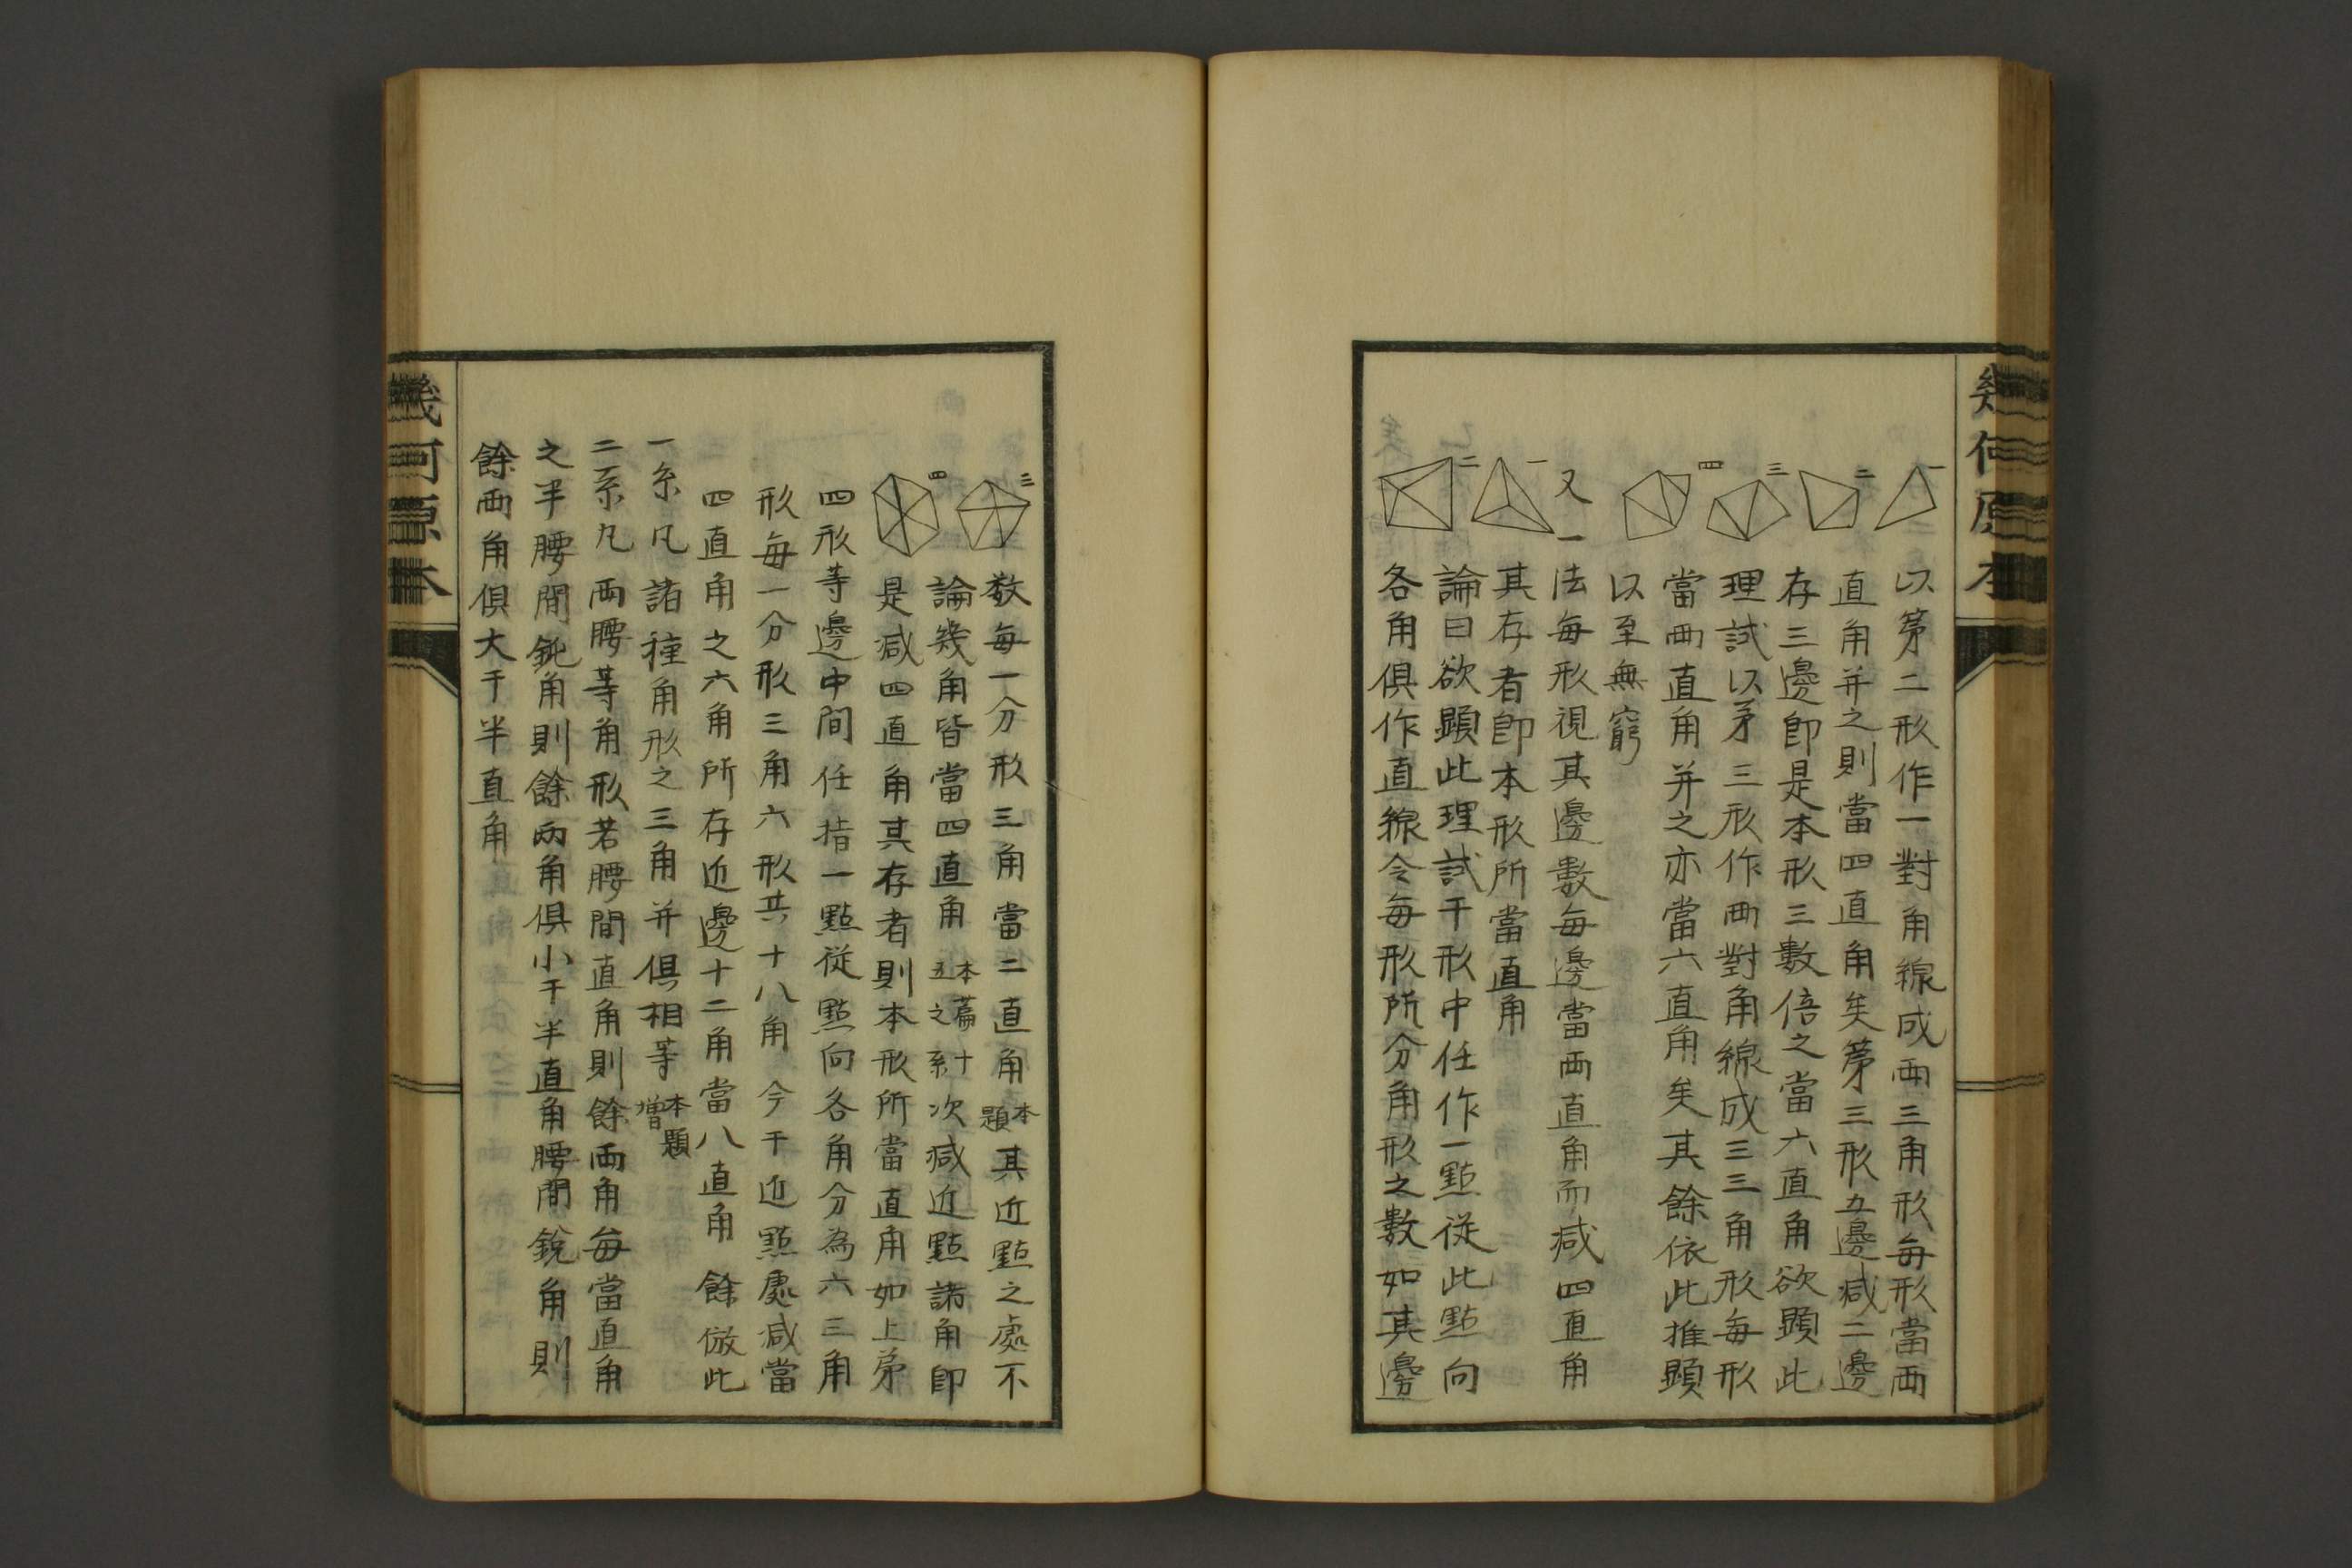 幾何原本
一
二
三
四
以苐二形作一對角線成兩三角形每形當兩
直角并之則當四直角矣苐三形五邊减二邊
存三邊即是本形三數倍之當六直角欲顯此
理試以苐三形作兩對角線成三三角形每形
當兩直角并之亦當六直角矣其餘依此推顯
以至無窮
又一法每形視其邊數每邊當兩直角而减四直角
其存者即本形所當直角
一
二
論曰欲顯此理試于形中任作一點從此點向
各角俱作直線令每形所分角形之數如其邊
三
四
数每一分形三角當二直角本題其近點之處不
論幾角皆當四直角本篇十五之系次减近點諸角即
是减四直角其存者則本形所當直角如上苐
四形等邊中間任指一點從點向各角分為六三角
形每一分形三角六形共十八角今于近點處减當
四直角之六角所存近邊十二角當八直角餘倣此
一系凡諸種角形之三角并俱相等本題增
二系凡兩腰等角形若腰間直角則餘兩角每當直角
之半腰間鈍角則餘兩角俱小于半直角腰間銳角則
餘兩角俱大于半直角
幾何原本